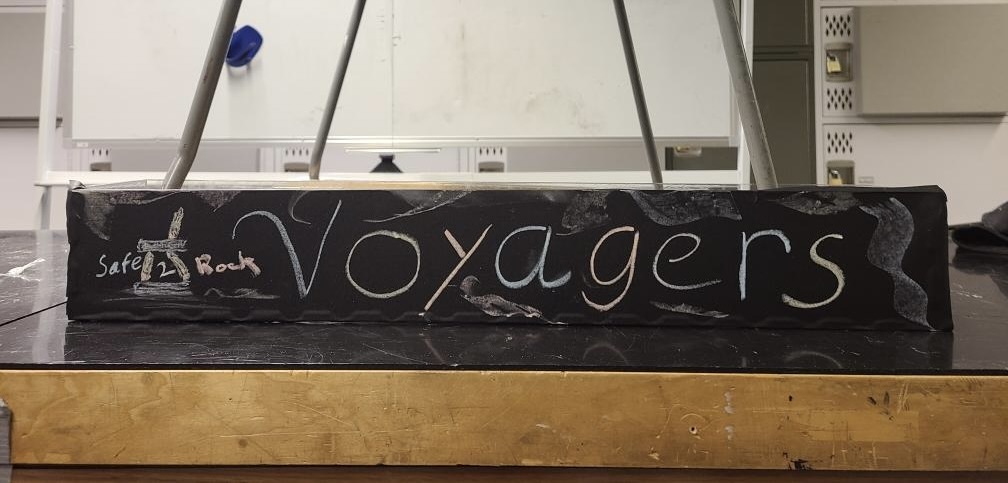 Safe 2 Rock Voyagers